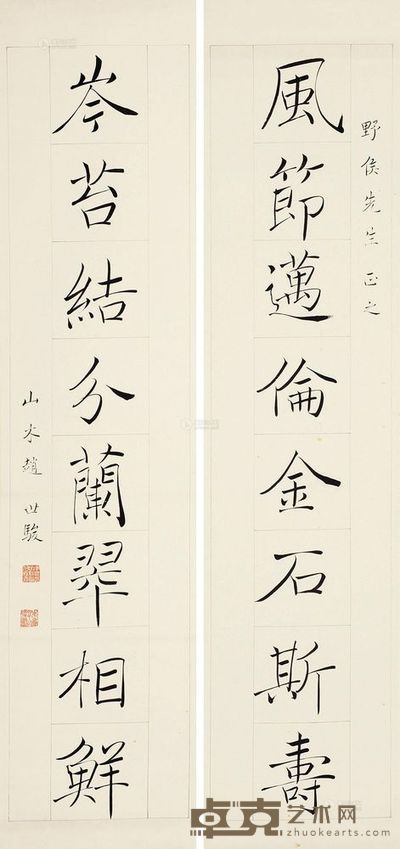 野侯先生正之
風節邁倫金石斯壽
岑苔結分蘭翠相鮮
山木趙世駿
卓克艺术网
zhuokearts.com